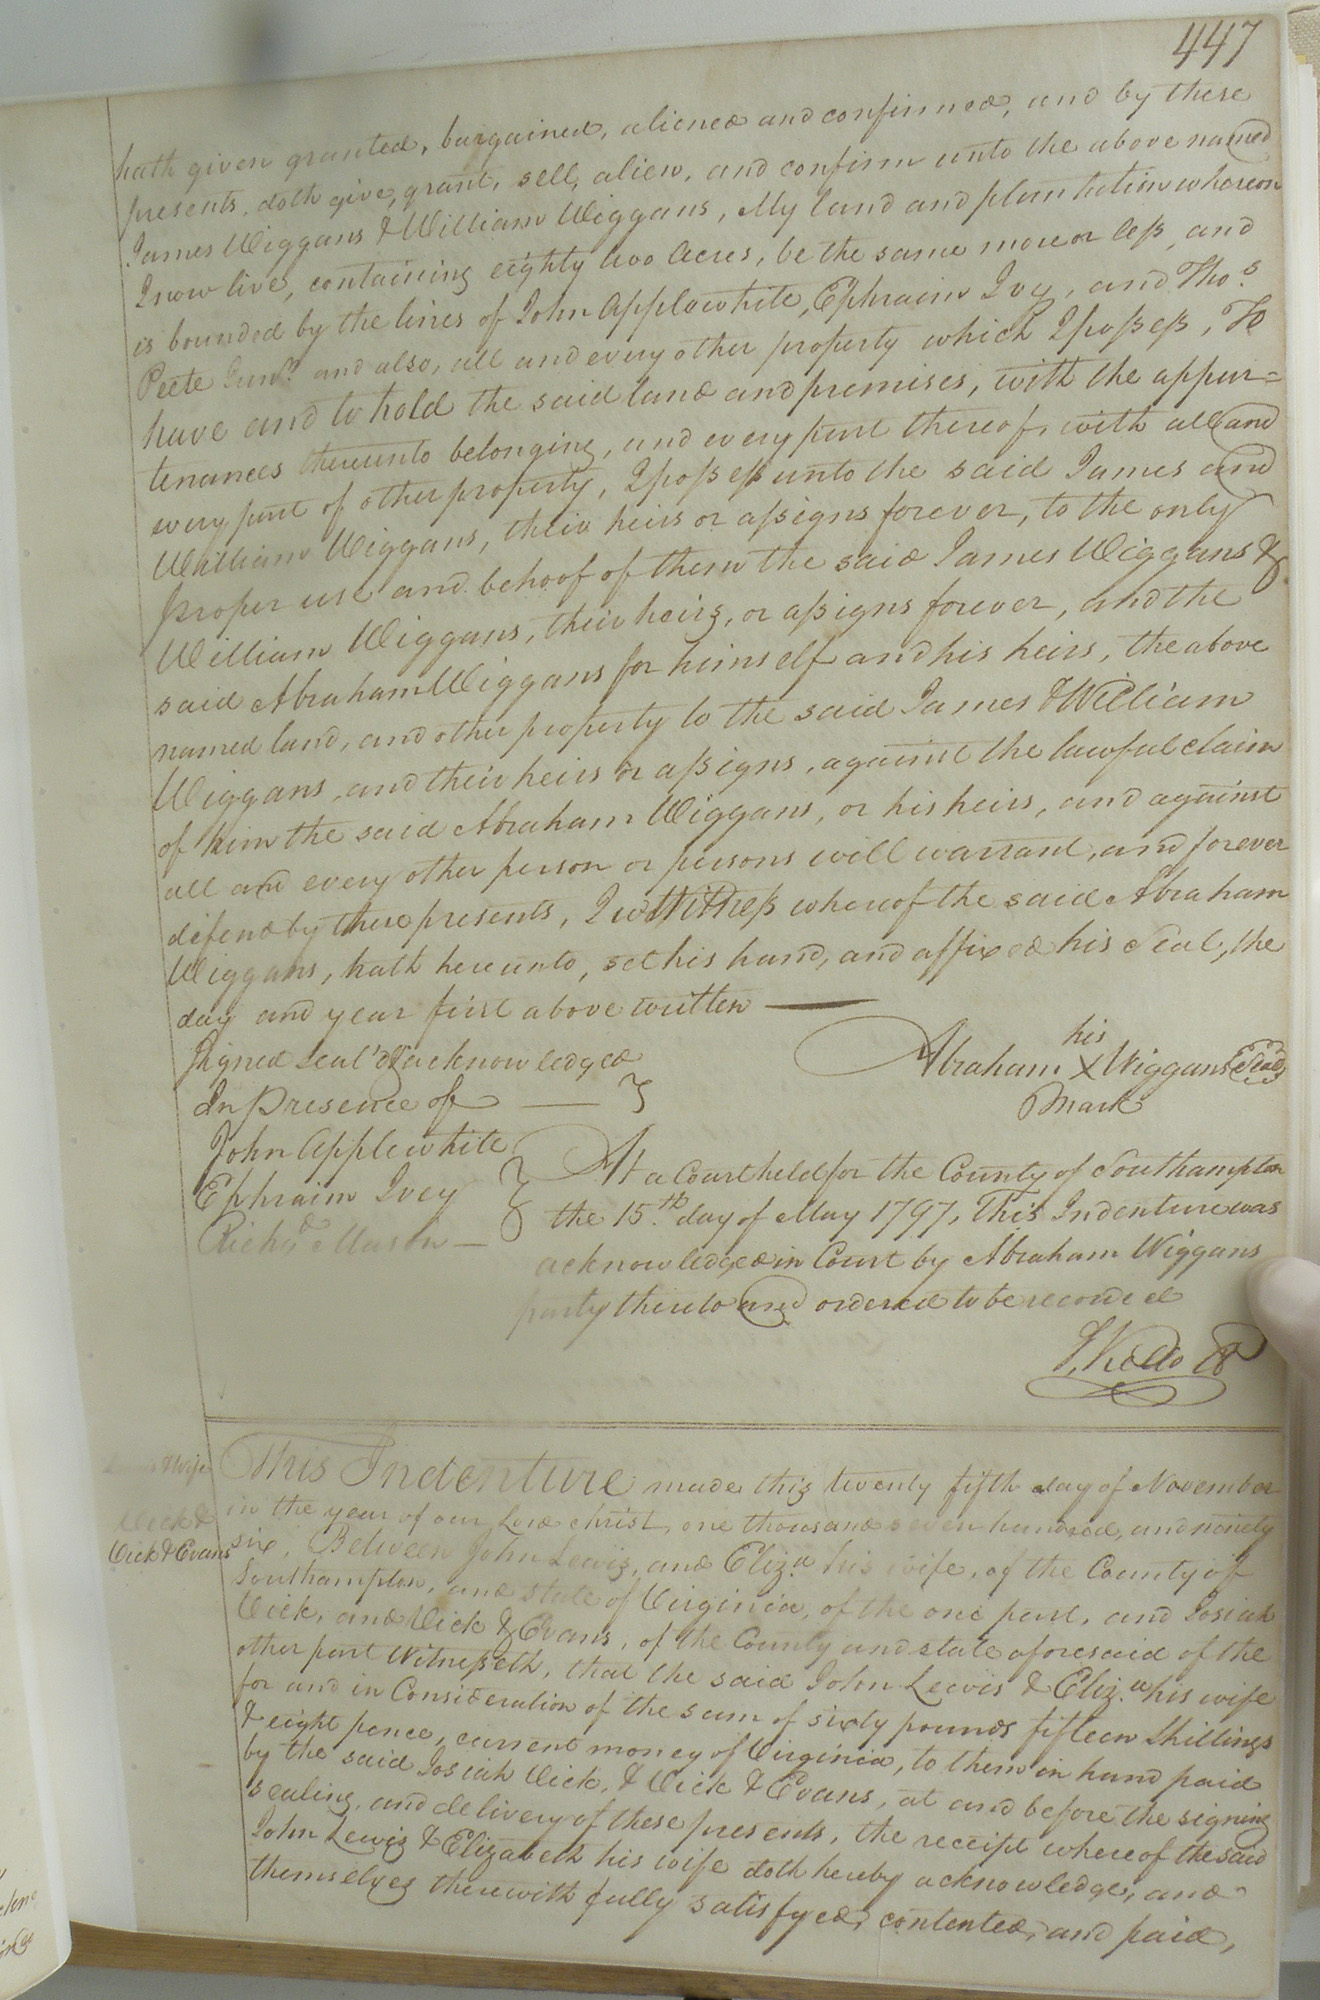 447
hath given granted, bargained, aliened and confirmed, and by these
presents, doth give, grant, sell, alien, and confirm unto the above named
James Wiggans & William Wiggans, My land and plantation whereon
I now live, containing eighty two Acres, be the same more or less, and
is bounded by the lines of John Applewhite, Ephraim Ivy, and Thos.
Peete Junr. and also, all and every other property which I possess, To
have and to hold the said land and premises, with the appur=
tenances thereunto belonging, and every part thereof, with all and
every part of other property, I possess unto the said James and
William Wiggans, their heirs or assigns forever, to the only
proper use and behoof of them the said James Wiggans &
William Wiggans, their heirs, or assigns forever, and the
said Abraham Wiggans for himself and his heirs, the above
named land, and other property to the said James & William
Wiggans, and their heirs or assigns, against the lawful claim
of him the said Abraham Wiggans, or his heirs, and against
all and every other person or persons will warrant, and forever
defend by these presents, In Witness whereof the said Abraham
Wiggans, hath hereunto, set his hand, and affixed his Seal, the
day and year first above written
Signed Seal'd & acknowledged
In Presence of
John Applewhite
Ephraim Ivey
Richd. Mason
his
Abraham X Wiggans Seal
Mark
At a Court held for the County of Southampton
the 15th. day of May 1797, This Indenture was
acknowledged in Court by Abraham Wiggans
party thereto and ordered to be recorded
S. Kello CC
& Wife
Vick &
Vick & Evans
This Indenture made this twenty fifth day of November
in the year of our Lord Christ, one thousand seven hundred, and ninety
six, Between John Lewis, and Eliza. his wife, of the County of
Southampton, and state of Virginia, of the one part, and Josiah
Vick, and Vick & Evans, of the County and state aforesaid of the
other part Witnesseth, that the said John Lewis & Eliza. his wife
for and in Consideration of the sum of sixty pounds fifteen Shillings
& eight pence, current money of Virginia, to them in hand paid
by the said Josiah Vick, & Vick & Evans, at and before the signing
sealing, and delivery of these presents, the receipt whereof the said
John Lewis & Elizabeth his wife doth hereby acknowledge, and
themselves therewith fully satisfyed, contented, and paid,